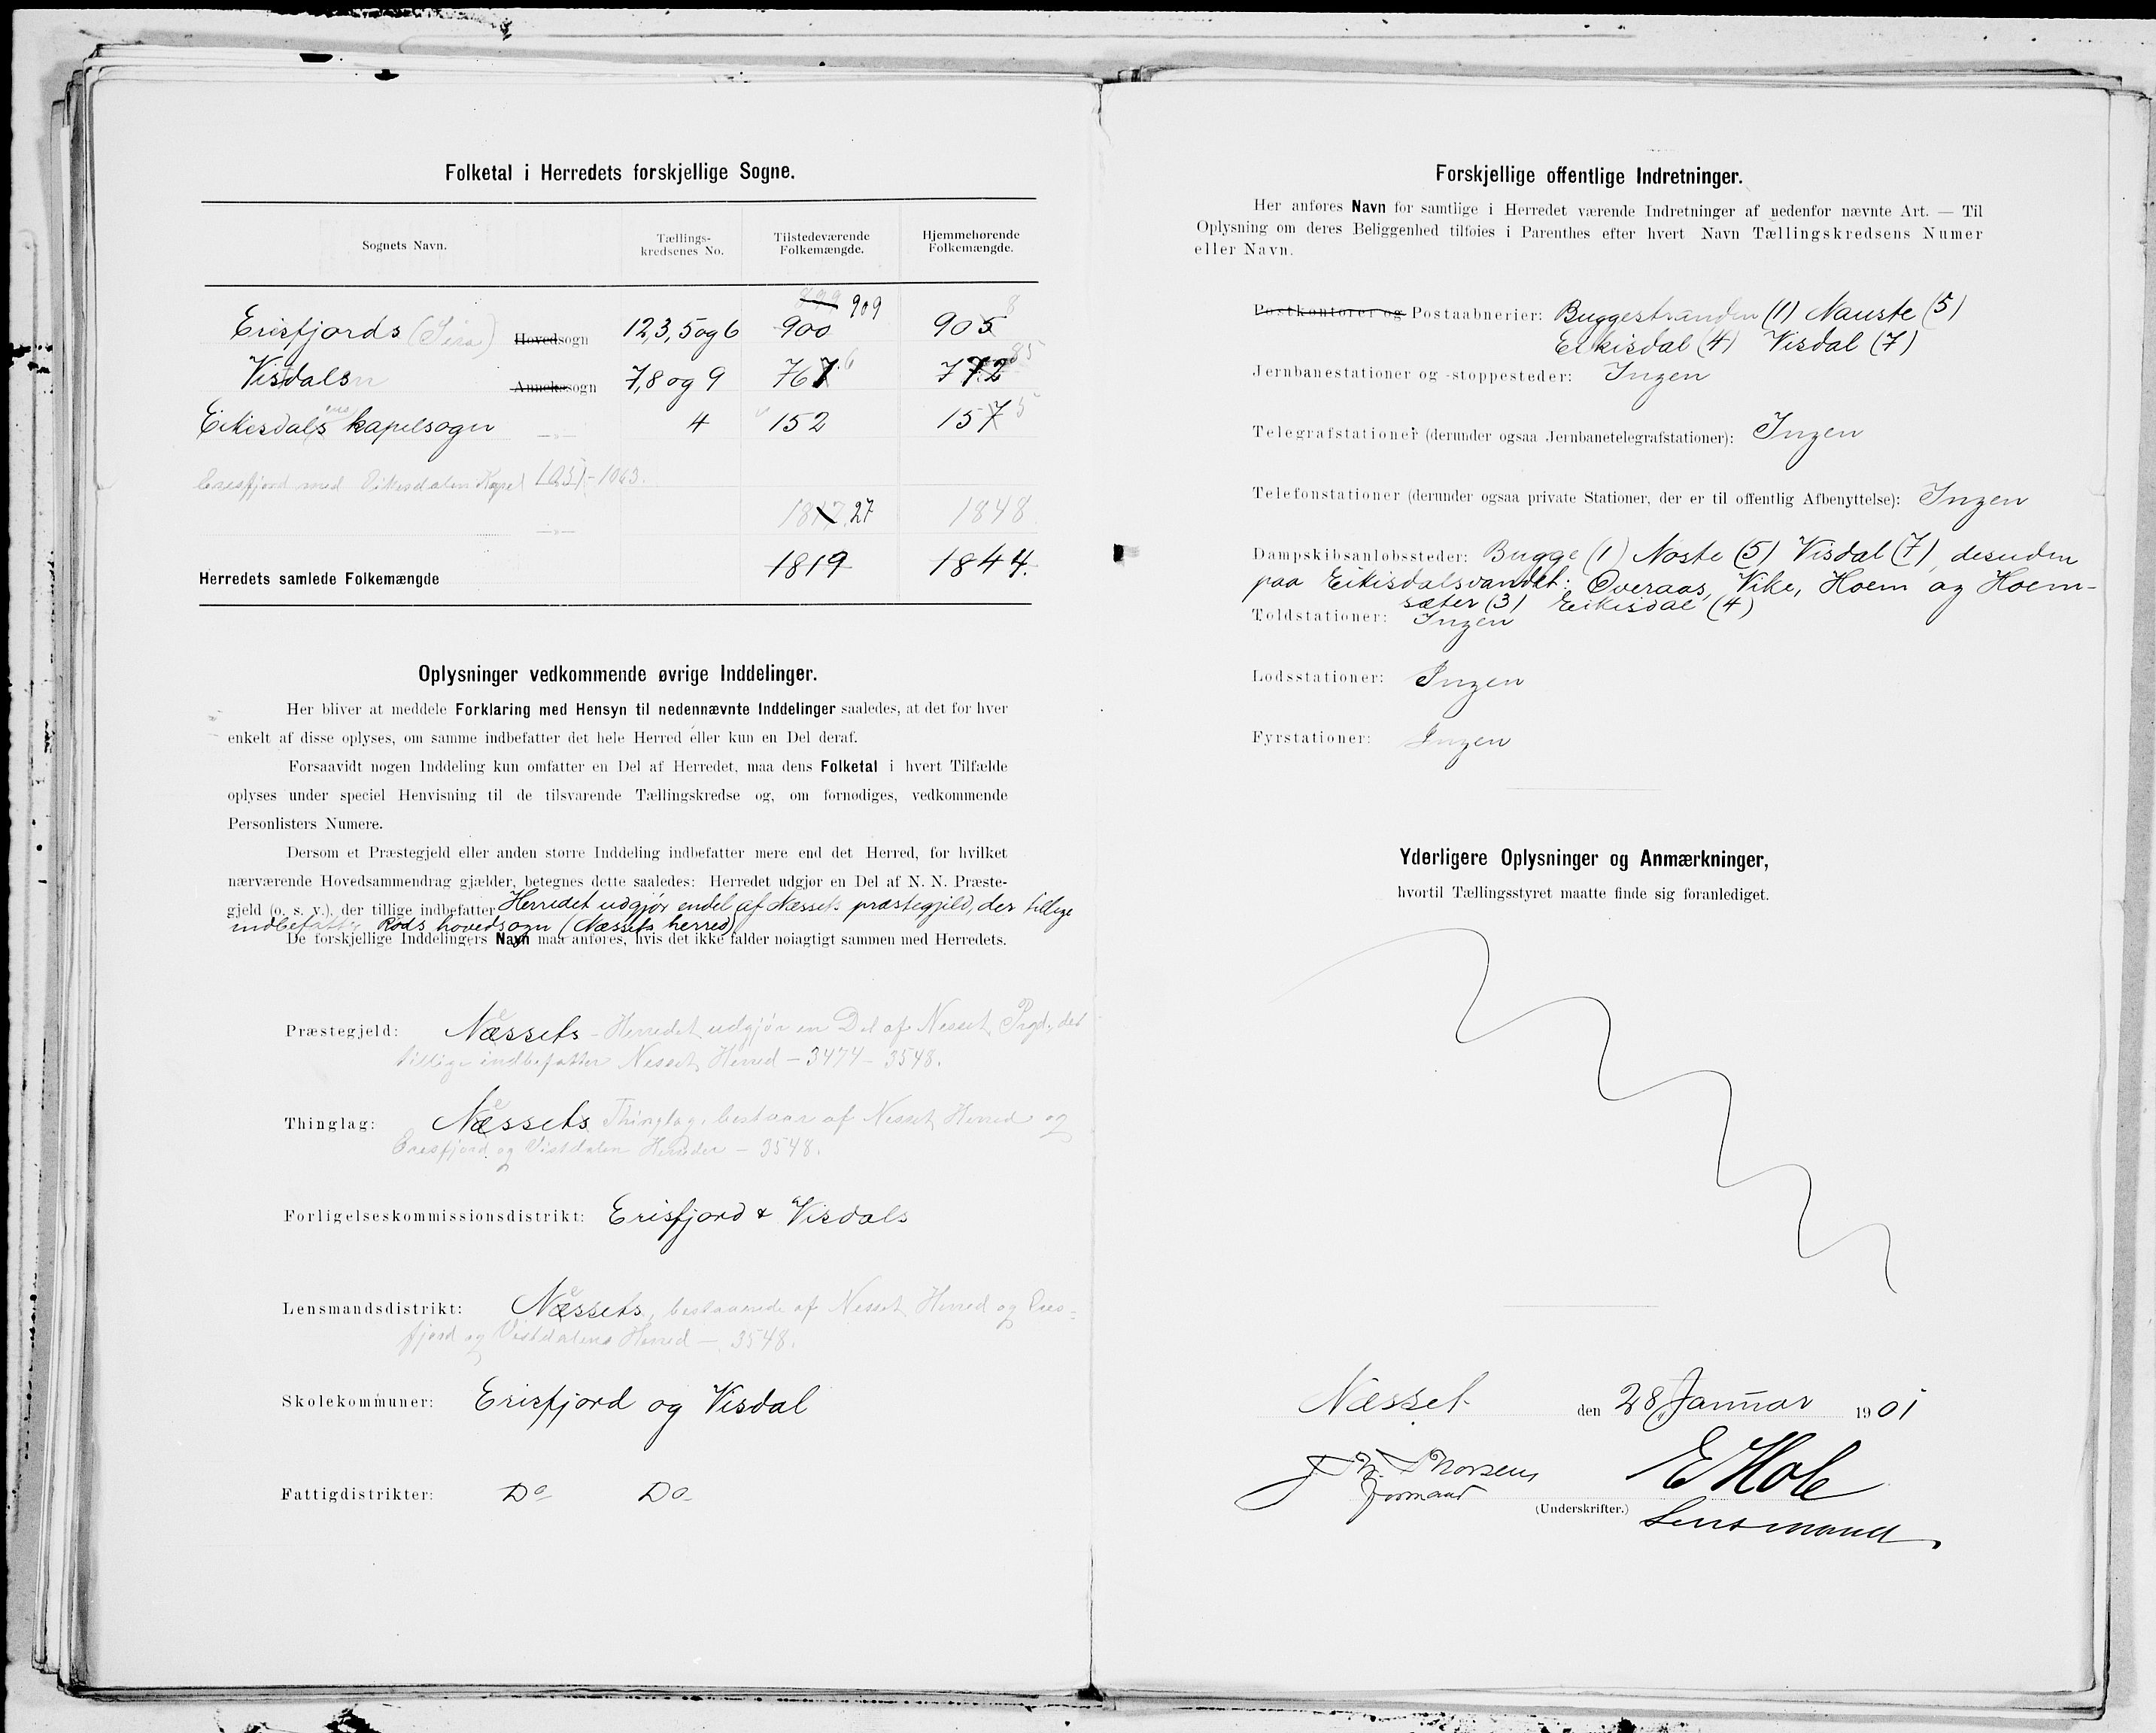 Folketal i Herredets forskjellige Sogne.
Sognets Navn.
Tællings-
kredsenes No.
Tilstedeværende
Folkemængde.
Hjemmehørende
Folkemængde.
899 909 8
Erisfjords (Sira) Hovedsogn 1,2,3,5 og 6 900 905
Visdals Annekssogn 7,8 og 9 767 6 772 85
Eikisdals kapelsogn 4 152 157 5
Eresfjord med Eikesdalen Kapel 1051-1063.
1817 27 1848
Herredets samlede Folkemængde 1819 1844.
Oplysninger vedkommende øvrige Inddelinger.
Her bliver at meddele Forklaring med Hensyn til nedennævnte Inddelinger saaledes, at det for hver
enkelt af disse oplyses, om samme indbefatter det hele Herred eller kun en Del deraf.
Forsaavidt nogen Inddeling kun omfatter en Del af Herredet, maa dens Folketal i hvert Tilfælde
oplyses under speciel Henvisning til de tilsvarende Tællingskredse og, om fornødiges, vedkommende
Personlisters Numere.
Dersom et Præstegjeld eller anden større Inddeling indbefatter mere end det Herred, for hvilket
nærværende Hovedsammendrag gjælder, betegnes dette saaledes: Herredet udgjør en Del af N. N. Præste-
gjeld (o. s. v.), der tillige indbefatter Herredet udgjør endel af Næssets præstegjeld, der tillige
indbefatter Røds hovedsogn (Næssets herred)
De forskjellige Inddelingers Navn maa anføres, hvis det ikke falder nøiagtigt sammen med Herredets.
Præstegjeld: Næssets - Herredet udgjør en Del af Nesset Prgd., der
tillige indbefatter Nesset Herred - 3474 - 3548.
Thinglag: Næssets Thinglag, bestaar af Nesset Herred og
Eresfjord og Vistdalen Herreder - 3548.
Forligelseskommissionsdistrikt: Erisfjord & Visdals
Lensmandsdistrikt: Næssets, bestaaende af Nesset Herred og Eres-
fjord og Vistdalens Herred - 3548.
Skolekommuner: Erisfjord og Visdal
Fattigdistrikter: Do Do
Forskjellige offentlige Indretninger.
Her anføres Navn for samtlige i Herredet værende Indretninger af nedenfor nævnte Art. — Til
Oplysning om deres Beliggenhed tilføies i Parenthes efter hvert Navn Tællingskredsens Numer
eller Navn.
Postkontorer og Postaabnerier: Buggestranden (1) Nauste (5)
Eikisdal (4) Visdal (7)
Jernbanestationer og -stoppesteder: Ingen
Telegrafstationer (derunder ogsaa Jernbanetelegrafstationer): Ingen
Telefonstationer (derunder ogsaa private Stationer, der er til offentlig Afbenyttelse): Ingen
Dampskibsanløbssteder: Bugge (1) Noste (5) Visdal (7), desuden
paa Eikisdalsvandet: Øveraas, Vike, Hoem og Hoem-
sæter (3) Eikisdal (4)
Toldstationer: Ingen
Lodsstationer: Ingen
Fyrstationer: Ingen
Yderligere Oplysninger og Anmærkninger,
hvortil Tællingsstyret maatte finde sig foranlediget.
Næsset den 28 Januar 1901
Thorsen E Hole
formand
(Underskrifter.)
Lensmand